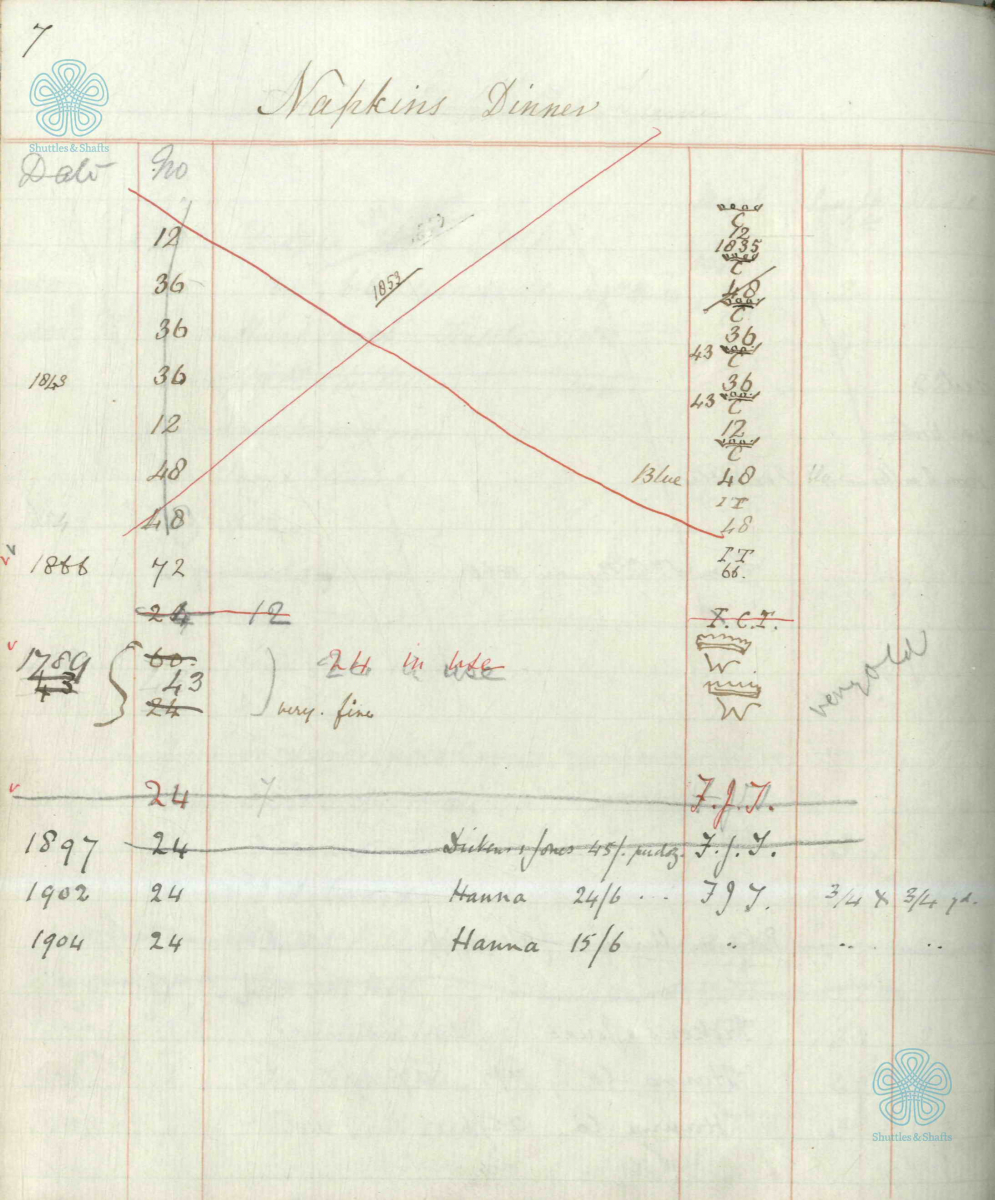 7
Shuttles & Shafts
Napkins Dinner
Date No
C
12 12
1835
C
36 1853 48
C
36 36
43 C
1843 36 36
43 C
12 12
C
48 Blue 48
I T
48 48
1866 72 I T
66.
24 12 F.C.T.
1789 60. 24 in use W
43 43 very old
24 very. fine W
24 7 F.J.T.
1897 24 Dickens & Jones 45/. pr doz. F.J.T.
1902 24 Hanna 24/6 .. F J T. 3/4 x 3/4 yd.
1904 24 Hanna 15/6 .. .. ..
Shuttles & Shafts